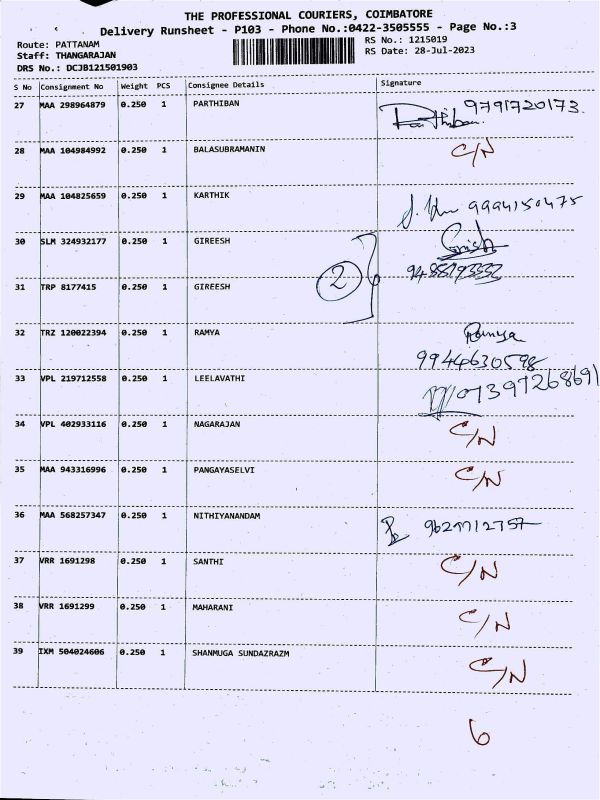 THE PROFESSIONAL COURIERS, COIMBATORE
Delivery Runsheet - P103 - Phone No.:0422-3505555 - Page No.:3
Route: PATTANAM
RS No.: 1215019
Staff: THANGARAJAN
RS Date: 28-Jul-2023
DRS No.: DCJB121501903
S No Consignment No Weight PCS Consignee Details Signature
27 MAA 298964879 0.250 1 PARTHIBAN Parthiban 9791720173.
28 MAA 104984992 0.250 1 BALASUBRAMANIN C/N
29 MAA 104825659 0.250 1 KARTHIK 9994150475
30 SLM 324932177 0.250 1 GIREESH Girish
2
31 TRP 8177415 0.250 1 GIREESH
32 TRZ 120022394 0.250 1 RAMYA Ramya
9944630598
33 VPL 219712558 0.250 1 LEELAVATHI
34 VPL 402933116 0.250 1 NAGARAJAN C/N
35 MAA 943316996 0.250 1 PANGAYASELVI C/N
36 MAA 568257347 0.250 1 NITHIYANANDAM
37 VRR 1691298 0.250 1 SANTHI C/N
38 VRR 1691299 0.250 1 MAHARANI C/N
39 IXM 504024606 0.250 1 SHANMUGA SUNDAZRAZM C/N
6